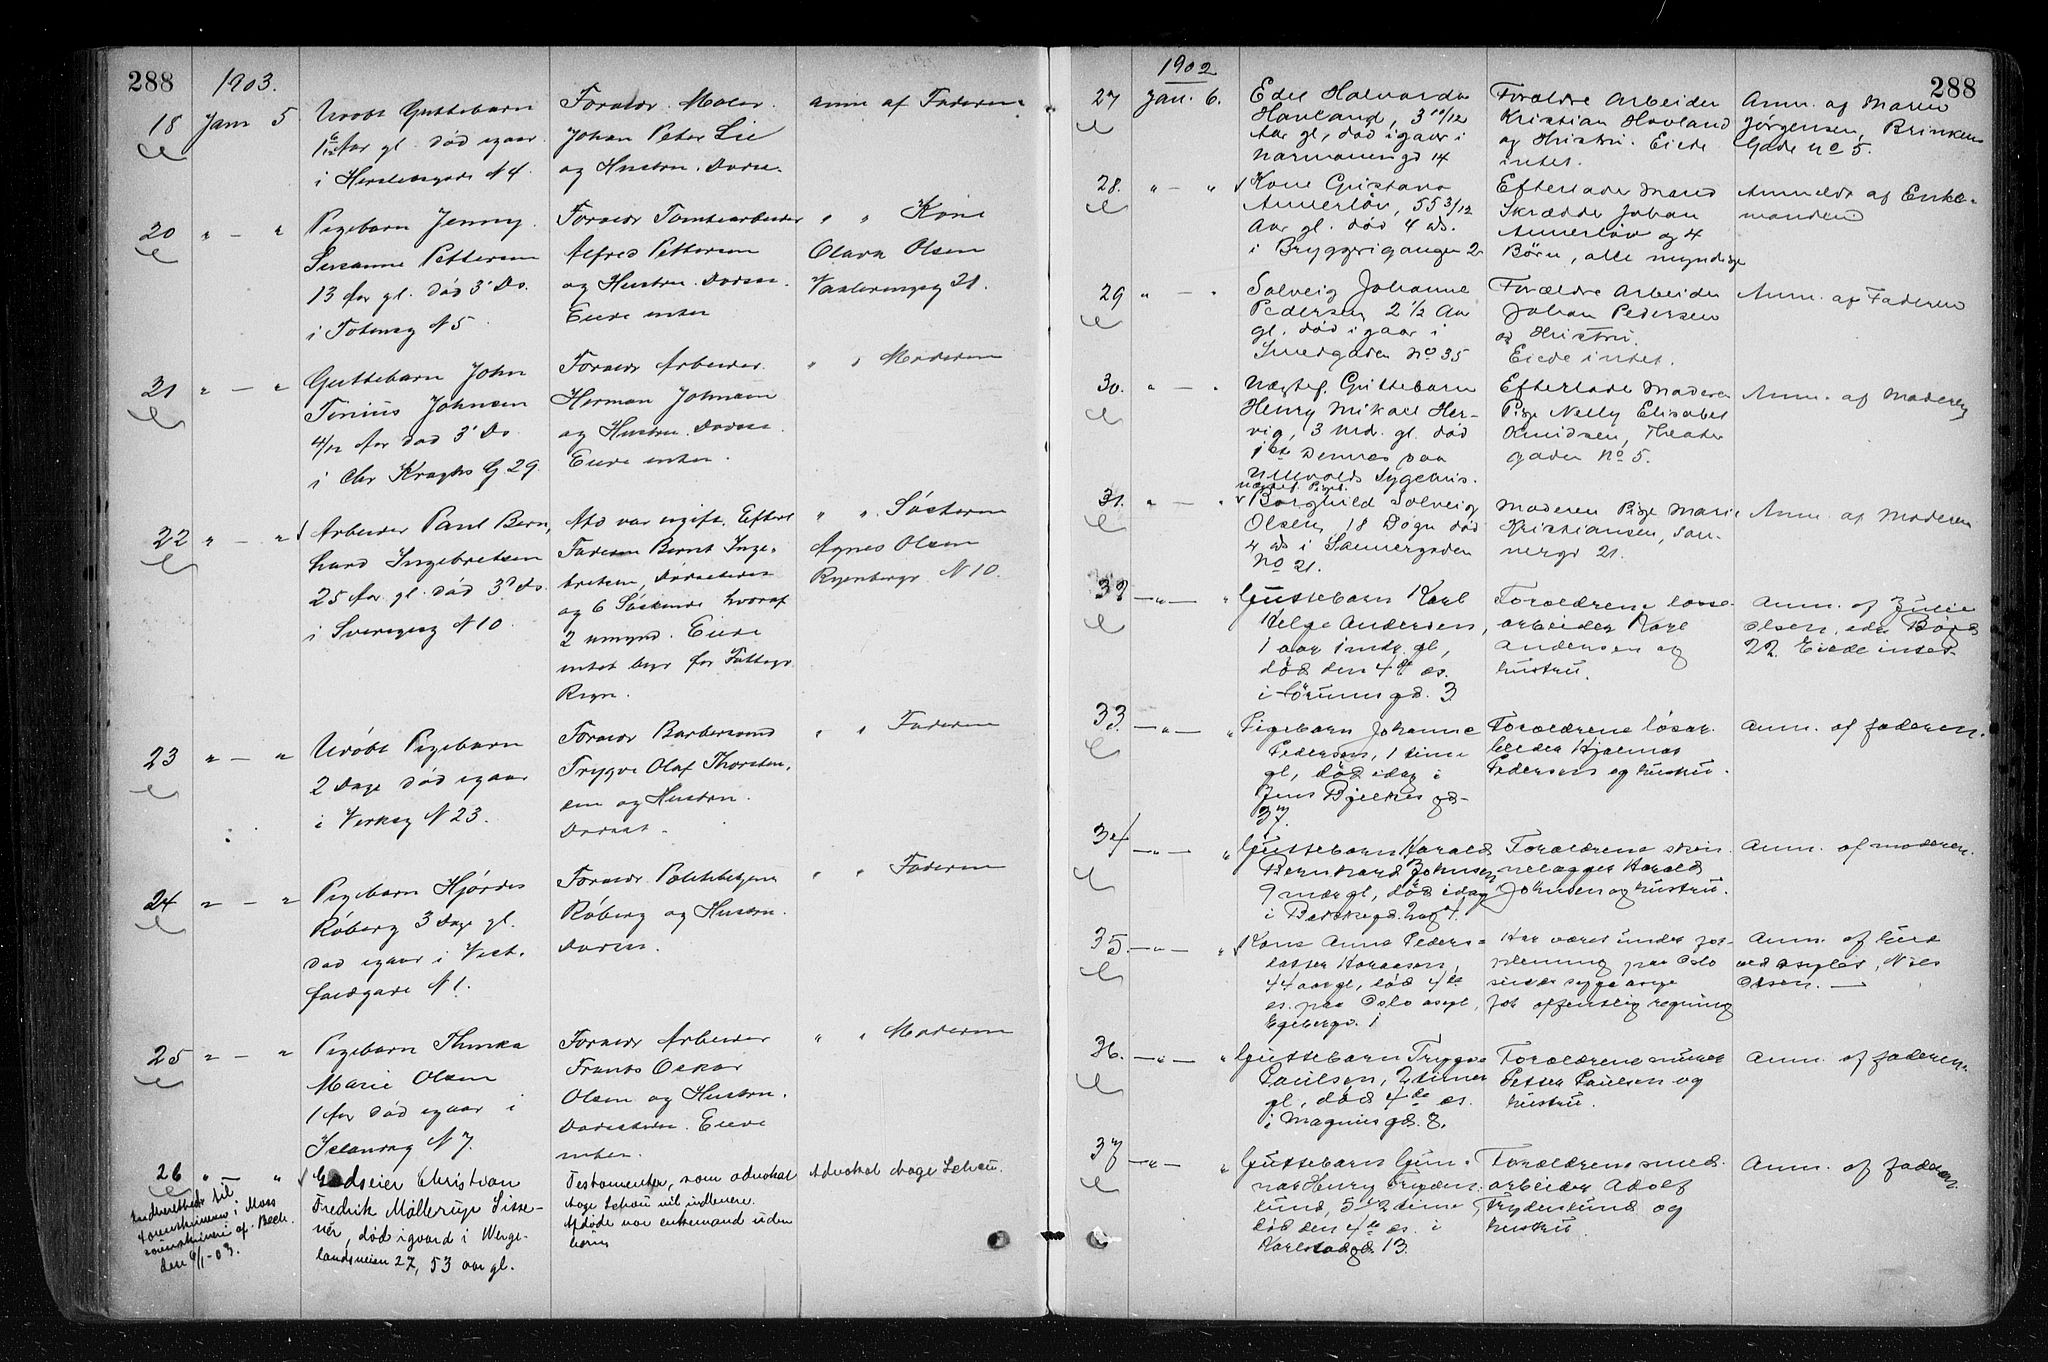 288
1903.
18
Jan 5
Udøbt Guttebarn
Aar gl. død igaar
i Herslebsgade N 4
Forældr. Maler
Johan Peter Lie
og Hustru.
Anm af Faderen
20
" — "
Pigebarn Jenny
Susanne Pettersen
13 Aar gl. død 3' Ds.
i Totensg N 5
Forældr Tomtearbeider
Alfred Pettersen
og Hustru.
Eiede intet
" " Kone
Olava Olsen
Vaalerengsg 21.
21
" — "
Guttebarn John
Johnsen
4/12 Aar død 3' Ds
i Chr Kroghs G 29.
Forældr Arbeider
Herman Johnsen
og Hustru.
Eiede intet.
" " Moderen
22
" — "
Arbeider Paul Bern,
hard Ingebretsen
25 Aar gl. død 3' Ds.
i Sverigesg N 10.
Afd var ugift. Efterl
Faderen Bernt Inge-
bretsen,
og 6 Søskende hvoraf
2 umynd. Eiede
intet begr for Fattigv
Regn.
" " Søsteren
Agnes Olsen
Ryenbergv N 10.
23
" — "
Udøbt Pigebarn
2 Dage død igaar
i Verksg N 23.
Forældr Barbersvend
Trygve Olaf Thorsten,
sen og Hustru.
" " Faderen
24
" — "
Pigebarn Hjørdis
Røberg 3 Dage gl.
død igaar i Vest.
foldgade N 1.
Forældr Politibetjent
Røberg og Hustru.
" " Faderen
25
" — "
Pigebarn Thinka
Marie Olsen
1 Aar død igaar i
Islandsg N 7.
Forældr Arbeider
Frants Oskar
Olsen og Hustru.
Eiede
intet.
" " Moderen
26
" — "
Godseier Christian
Fredrik Møllerup Sisse-
nér, død igaard i Werge-
landsveien 27, 53 aar gl.
Testamenter, som advokat
Aage Schou vil indlevere.
Afdøde var enkemand uden
børn
Advokat Aage Schou.
Underrettede til
sorenskriveren i Moss
den 6/1-03.
1902
288
27
Jan. 6.
Edel Halvarda
Havland, 3 11/12
Aar gl, død igaar i
Normannsgd 14
Forældre Arbeider
Kristian Havland
og Hustru. Eiede
intet.
Anm. af Maren
Jørgensen, Brinkens
Gade no 5.
28.
" — "
Kone Gustava
Annerløv, 55 3/12
Aar gl. død 4 ds.
i Bryggerigangen 2
Efterlader Mand
Skrædder Johan
Annerløv og 4
Børn, alle myndige
Anmeldt af Enke-
manden
29
" — "
Solveig Johanne
Pedersen 2 1/2 Aar
gl. død igaar i
Smedgaden No 35
Forældre Arbeider
Johan Pedersen
og Hustru.
Eiede intet.
Anm. af Faderen
30.
" — "
Uægtef. Guttebarn
Henry Mikael Her-
vig, 3 Md. gl. død
1ste Dennes paa
Ullevolds Sygehus.
Efterlader Moderen
Pige Nelly Elisabet
Knudsen, Theater
gaden No 5.
Anm. af Moderen
31.
" — "
Uægtef. Pigeb.
Borghild Solveig
Olsen, 18 Døgn død
4 ds i Skippergaden
No 21.
Moderen Pige Marie
Kristiansen, San-
nergd 21.
Anm. af Moderen
32
— " —
Guttebarn Karl
Helge Andersen,
1 aar 1 mdr. gl,
død den 4de ds.
i Sørumsgd. 3
Forældrene losse-
arbeider Karl
Andersen og
hustru.
Anm. af Julie
Olsen,
22. Eiede intet.
33
— " —
Pigebarn Johanne
Pedersen, 1 time
gl, død idag i
Jens Bjelkes gd-
37.
Forældrene løsar-
beider Hjalmar
Pedersen og hustru.
Anm. af faderen.
34
— " —
Guttebarn Harald
Bernhard Johnsen
9 mdr gl, død idag
Forældrene sten
nelægger Harald
Johnsen og hustru.
Anm. af moderen.
35
— " —
Kone Anne Peders-
datter
44 aar gl, død 4de
ds. paa Oslo asyl,
Egebergv. 1
Har været under for-
pleining paa Oslo
sindssygeasyl
for offentlig regning
Anm. af bud
ved asylet, Nils
Olsen. —
36.
— " —
Guttebarn Trygve
Paulsen, 2 timer
gl, død 4de ds.
i Magnusgd. 8.
Forældrene murer
Petter Paulsen og
hustru.
Anm. af faderen.
37
— " —
Guttebarn Gun-
nar Henry Fryden-
lund, 5 1/2 time,
død den 4de ds. i
Karlstadgd 13.
Forældrene smed-
arbeider Adolf
Frydenlund og
hustru.
Anm. af faderen.